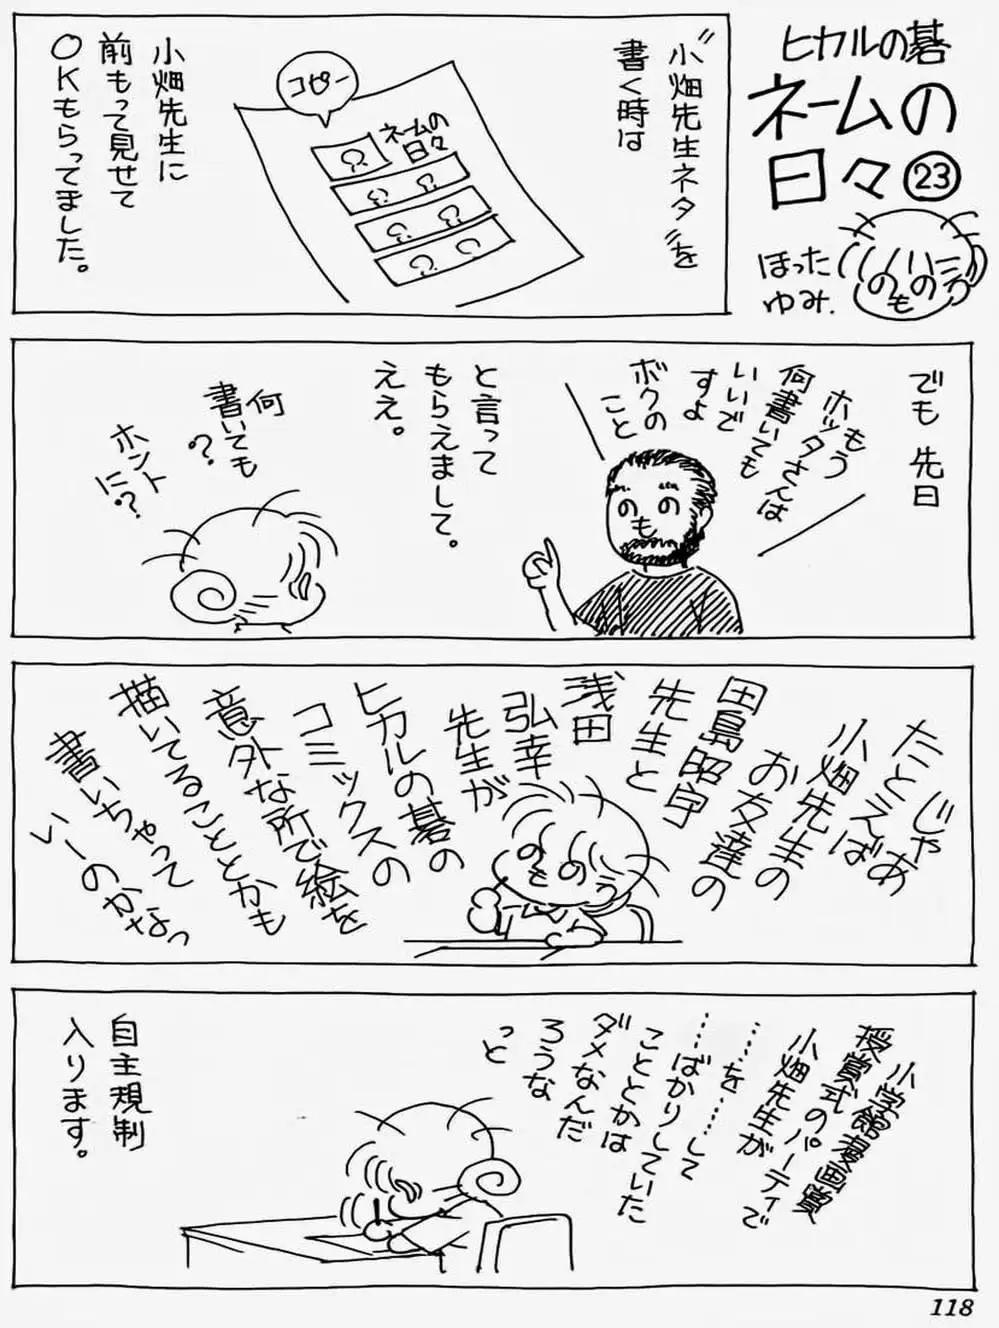 ヒカルの碁
ネームの
日々㉓
ほった
ゆみ.
〝小畑先生ネタ〟を
書く時は
コピー
ネームの
日々
小畑先生に
前もって見せて
OKもらってました。
でも 先日
もう
ホッタさんは
何書いても
いいで
すよ
ボクの
こと
と言って
もらえまして。
ええ。
何
書いても
?
ホント
に?
じゃあ
たとえば
小畑先生の
お友達の
田島昭宇
先生と
浅田
弘幸
先生が
ヒカルの碁の
コミックスの
意外な所で絵を
描いてることとかも
書いちゃって
いーのかなっ
小学館漫画賞
授賞式のパーティで
小畑先生が
……を……して
……ばかりしていた
こととかは
ダメなんだ
ろうな
っと
自主規制
入ります。
118